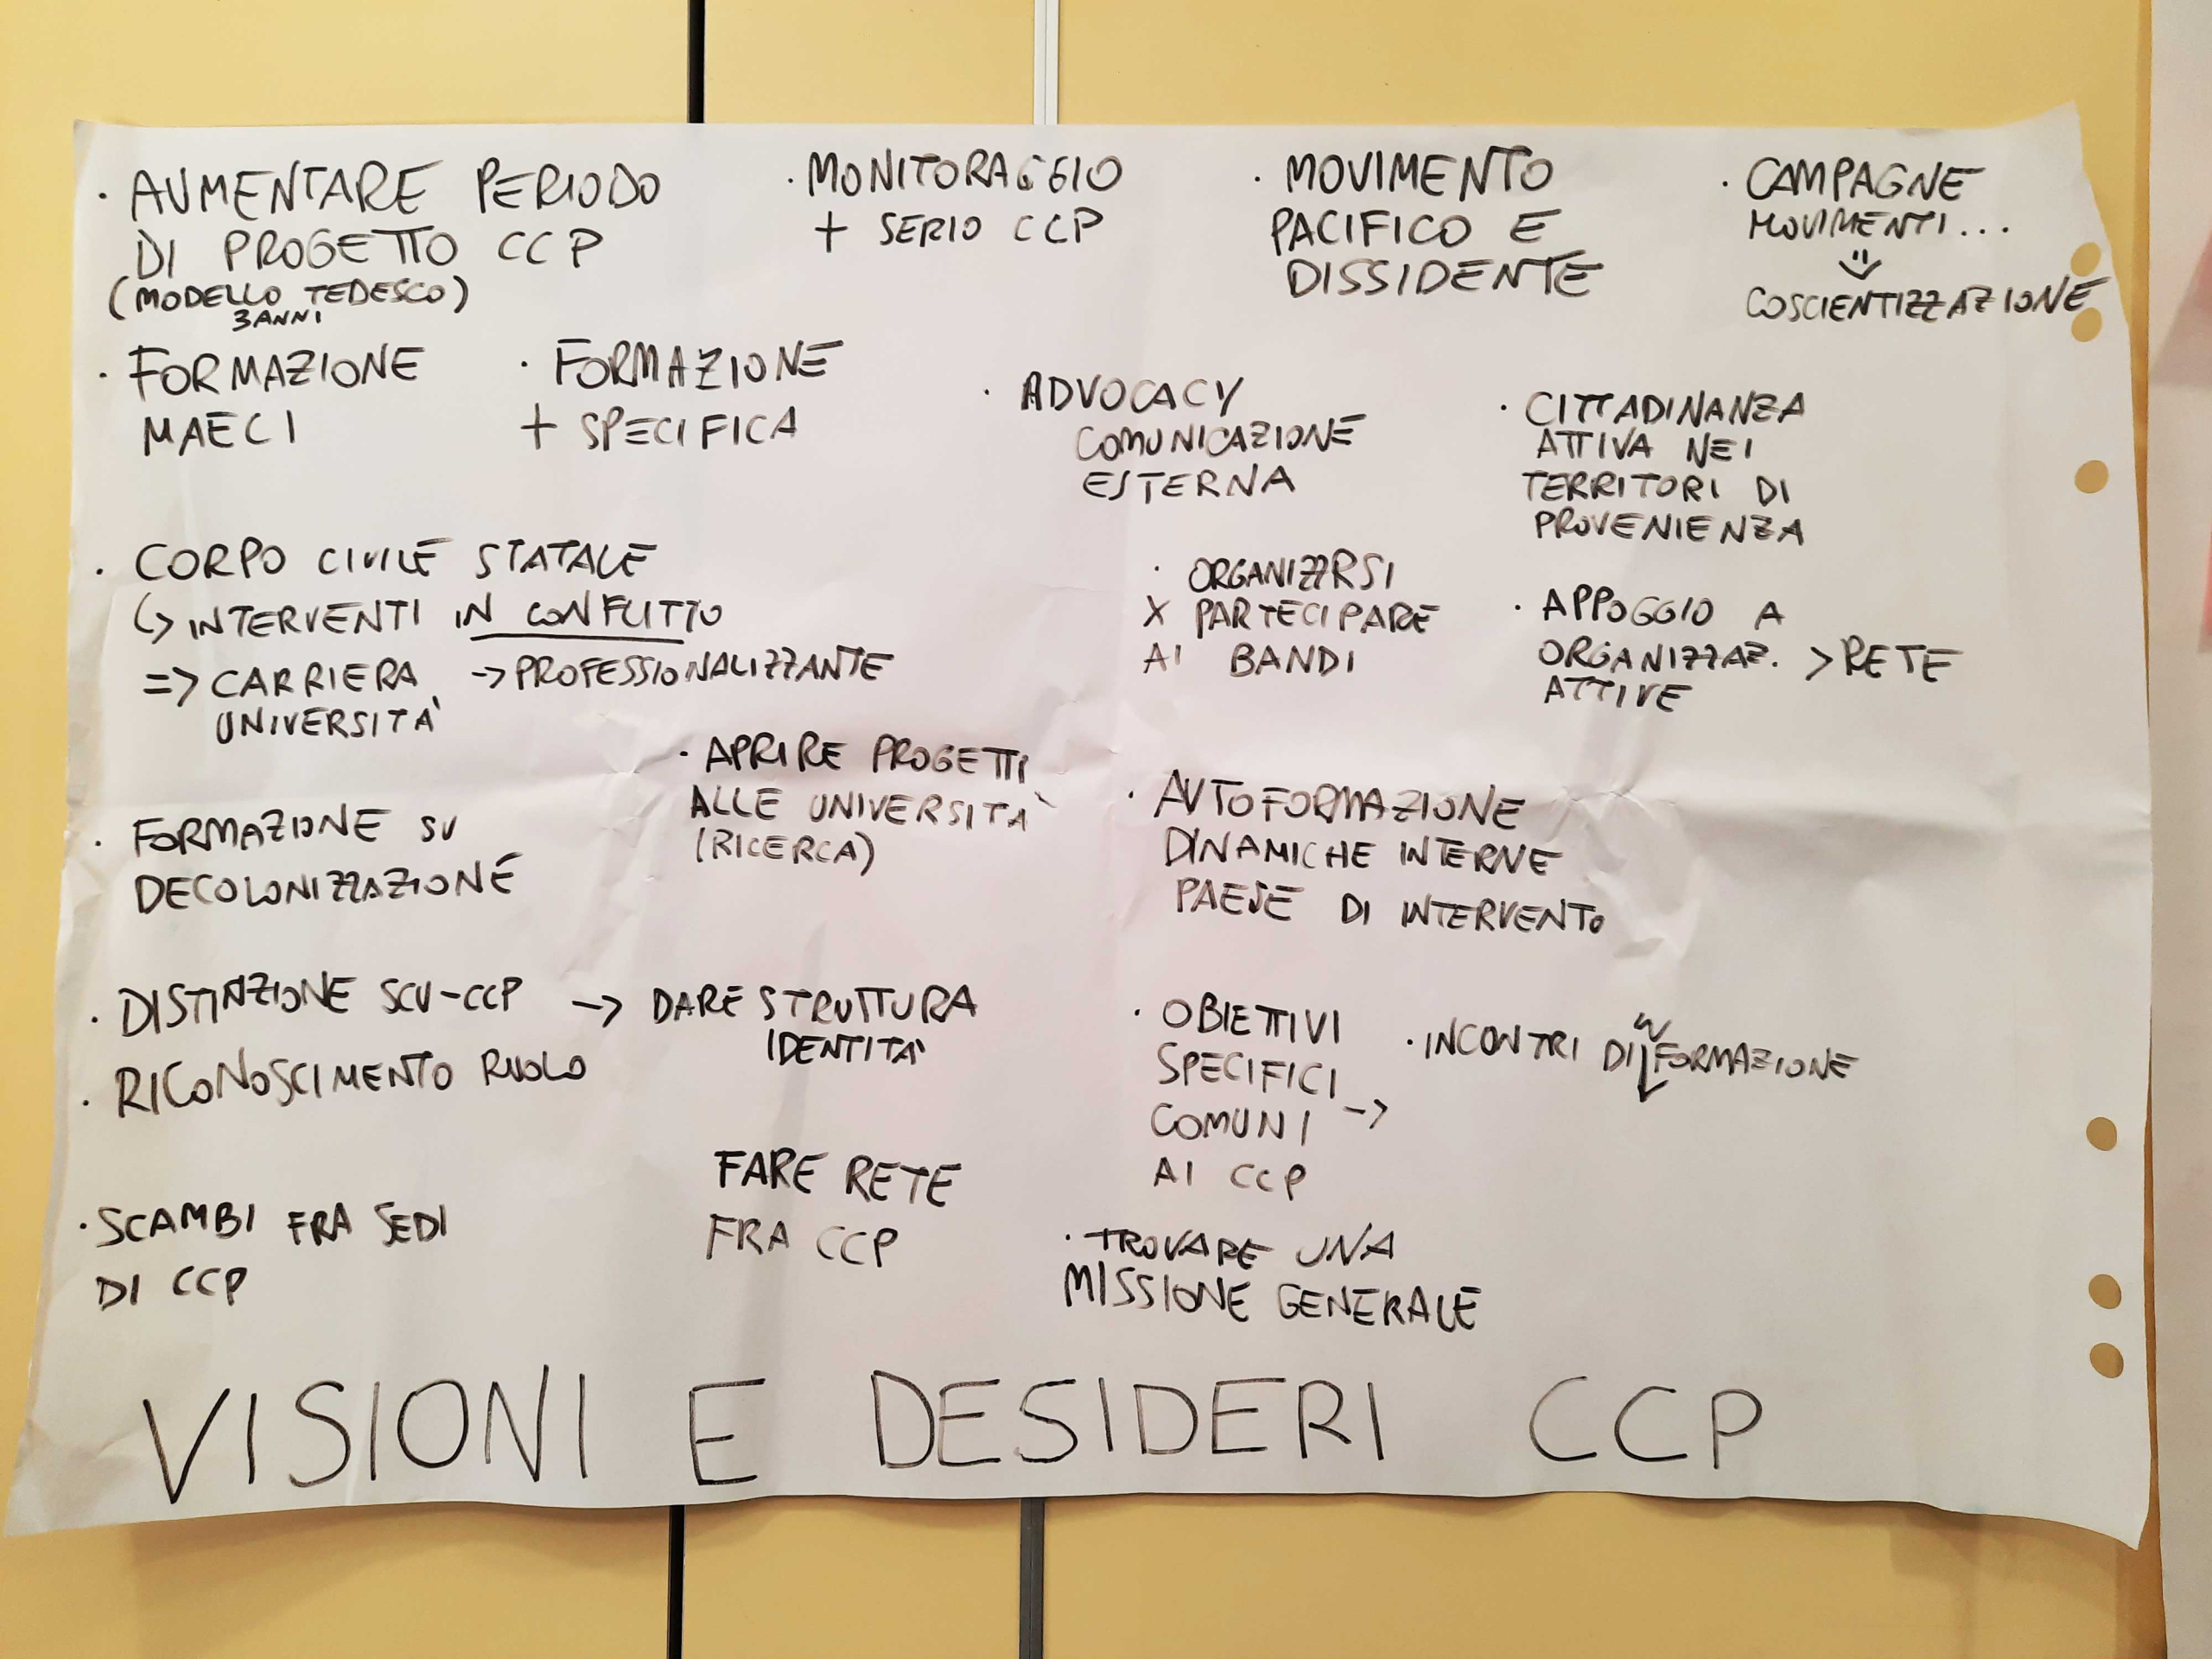 · AUMENTARE PERIODO
DI PROGETTO CCP
(MODELLO TEDESCO)
3 ANNI
· MONITORAGGIO
+ SERIO CCP
· MOVIMENTO
PACIFICO E
DISSIDENTE
· CAMPAGNE
MOVIMENTI...
COSCIENTIZZAZIONE
· FORMAZIONE
MAECI
· FORMAZIONE
+ SPECIFICA
· ADVOCACY
COMUNICAZIONE
ESTERNA
· CITTADINANZA
ATTIVA NEI
TERRITORI DI
PROVENIENZA
· CORPO CIVILE STATALE
↳ INTERVENTI IN CONFLITTO
=> CARRIERA -> PROFESSIONALIZZANTE
UNIVERSITÀ
· ORGANIZZRSI
X PARTECIPARE
AI BANDI
· APPOGGIO A
ORGANIZZAZ. > RETE
ATTIVE
· APRIRE PROGETTI
ALLE UNIVERSITÀ
(RICERCA)
· FORMAZIONE SU
DECOLONIZZAZIONE
· AUTOFORMAZIONE
DINAMICHE INTERNE
PAESE DI INTERVENTO
· DISTINZIONE SCU-CCP -> DARE STRUTTURA
IDENTITÀ
· RICONOSCIMENTO RUOLO
· OBIETTIVI
SPECIFICI
COMUNI ->
AI CCP
· INCONTRI DI INFORMAZIONE
· SCAMBI FRA SEDI
DI CCP
FARE RETE
FRA CCP
· TROVARE UNA
MISSIONE GENERALE
VISIONI E DESIDERI CCP